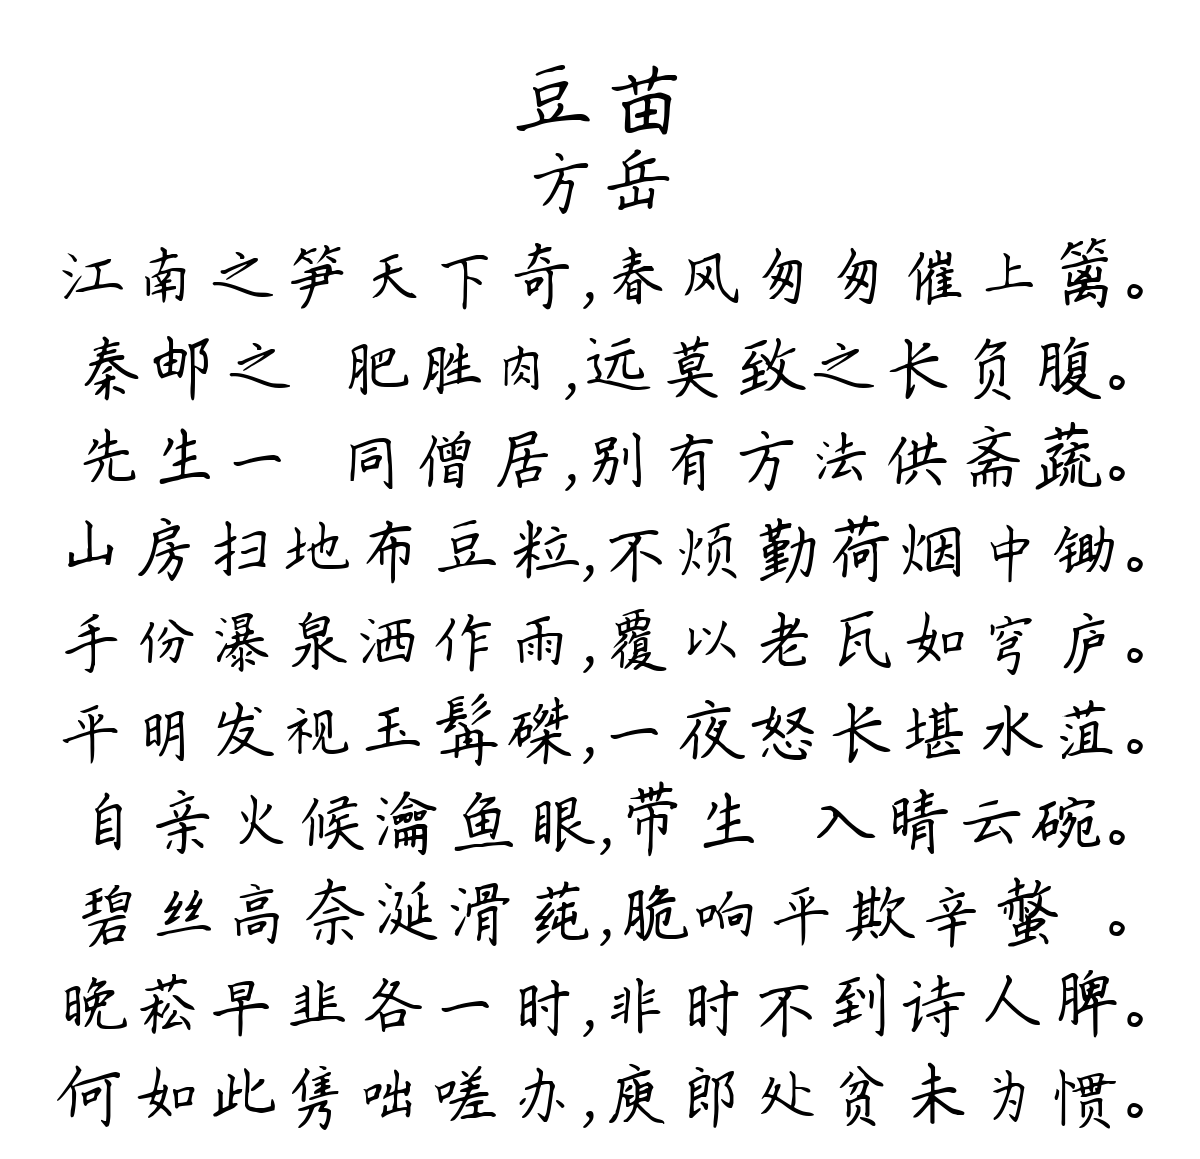 豆苗
方岳
江南之笋天下奇,春风匆匆催上篱。
秦邮之 肥胜肉,远莫致之长负腹。
先生一 同僧居,别有方法供斋蔬。
山房扫地布豆粒,不烦勤荷烟中锄。
手份瀑泉洒作雨,覆以老瓦如穹庐。
平明发视玉髯磔,一夜怒长堪水菹。
自亲火候瀹鱼眼,带生 入晴云碗。
碧丝高奈涎滑莼,脆响平欺辛螫 。
晚菘早韭各一时,非时不到诗人脾。
何如此隽咄嗟办,庾郎处贫未为惯。